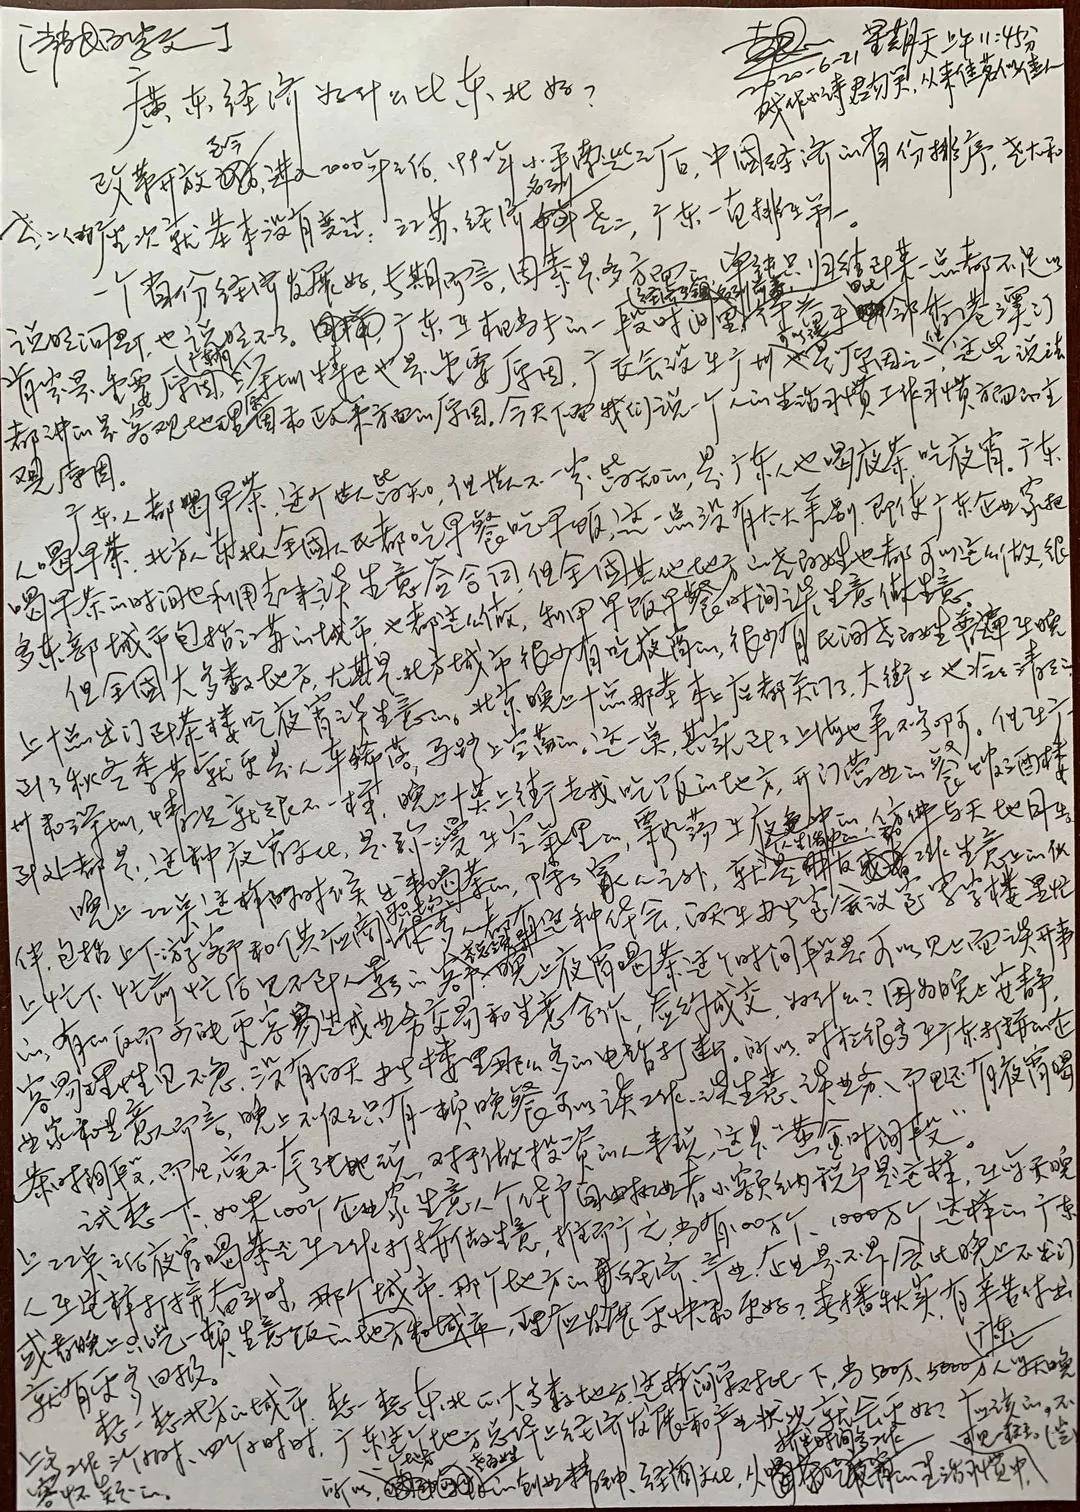 2020-6-21 星期天 上午11:45分
从来佳茗似佳人
廣东经济为什么比东北好？
改革开放至今，进入2000年之后，1992年小平南巡之后，中国经济的省份排序，老大和
老二的座次就基本没有变过：江苏经济名列老二，广东一直排在第一。
一个省份经济发展好，长期而言，因素是多方面，单纯只归结到某一点都不足以
说明问题，也说明不了。广东在相当长的一段时间里，得益于毗邻香港澳门
肯定是重要原因，深圳特区也是重要原因，广交会设在广州也是原因之一，这些说法
都讲的是客观地理因素和政策方面的原因。今天下面我们说一个人的生活习惯工作习惯方面的主
观原因。
广东人都喝早茶，这个世人皆知，但世人不一定皆知的，是广东人也喝夜茶，吃夜宵。广东
人喝早茶，北方人东北人全国人民都吃早餐吃早饭，这一点没有太大差别，即使广东企业家把
喝早茶的时间也利用起来谈生意签合同，但全国其他地方的老百姓也都可以这么做，很
多东部城市包括江苏的城市，也都这么做，利用早饭早餐时间谈生意做生意。
但全國大多数地方，尤其是北方城市很少有吃夜宵的，很少有民间老百姓在晚
上十点出门到茶楼吃夜宵谈生意的。北京晚上十点那基本上店都关门了，大街上也冷冷清清，
到了秋冬季节就更是人车稀落，马路上空荡的。这一点，其实到了上海也差不多啊。但在广
州和深圳，情况就很不一样，晚上十点上街去找吃饭的地方，开门营业的餐馆酒楼
到处都是，这种夜宵文化，是弥漫在空气里的，飘荡在夜色中的，仿佛与天地同在。
晚上22点这样的时候出来喝茶的，除了家人之外，就是工作生意上的伙
伴，包括上下游客户和供应商，很多人都有这种体会，白天在办公室会议室写字楼里忙
上忙下忙前忙后见不到人影的，晚上夜宵喝茶这个时间段是可以见上面谈开事
的，有的反而可能更容易达成业务交易和生意合作，签约成交，为什么？因为晚上安静，
容易理性且不急，没有白天办公楼里那么多的电话打断。所以，对于很多在广东打拼的企
业家和生意人而言，晚上不仅仅只有一顿晚餐可以谈工作、谈生意、谈业务，而且还有夜宵喝
茶时间段，而且毫不夸张地说，对于做投资的人来说，这是“黄金时间段”。
试想一下，如果100个企业家生意人个体户自由职业者小额纳税户是这样，在每天晚
上22点之后夜宵喝茶还在工作打拼做生意，推而广之，当有100万个、1000万个这样的广东
人在这样打拼奋斗时，那个城市、那个地方的经济、产业、企业是不是会比晚上不出门
或者晚上只吃一顿生意饭的地方和城市，理应发展更快和更好？春播秋实，有辛苦付出
就有更多回报。
想一想北方的城市，想一想东北的大多数地方，这样间单对比一下，当500万、5000万人每天晚
上多工作三个小时、四个小时时，广东这个地方总体上经济发展和产业状况就会更好？应该的。不
容怀疑的。
所以，创业精神、经商文化，从喝早茶吃夜宵的生活习惯中，
可见一斑。